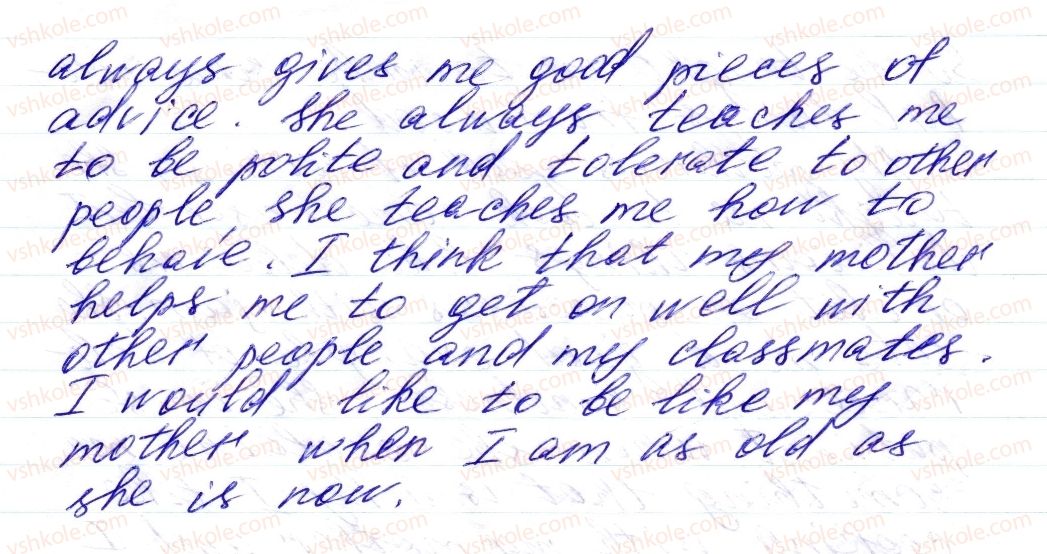 always gives me good pieces of
advice. She always teaches me
to be polite and tolerate to other
people, she teaches me how to
behave. I think that my mother
helps me to get on well with
other people and my classmates.
I would like to be like my
mother when I am as old as
she is now.